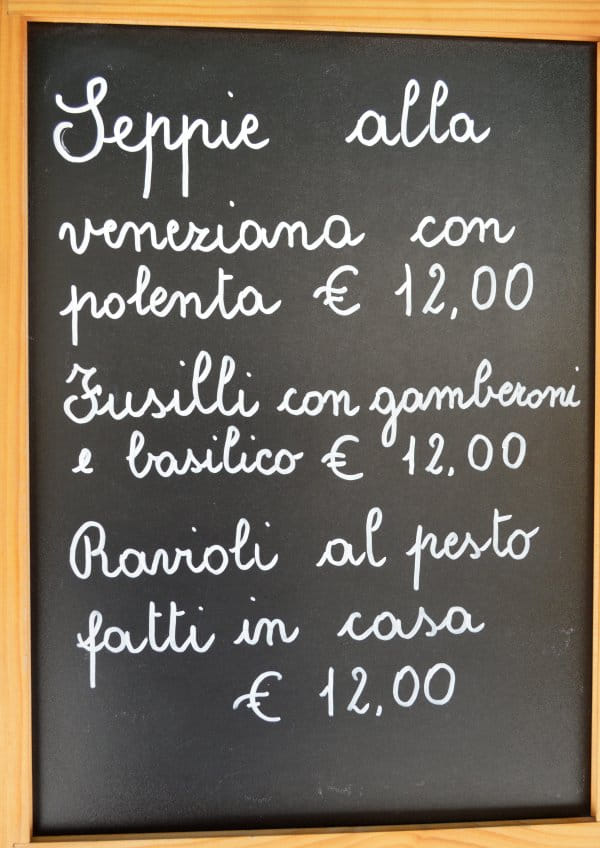 Seppie alla
veneziana con
polenta € 12,00
Fusilli con gamberoni
e basilico € 12,00
Ravioli al pesto
fatti in casa
€ 12,00